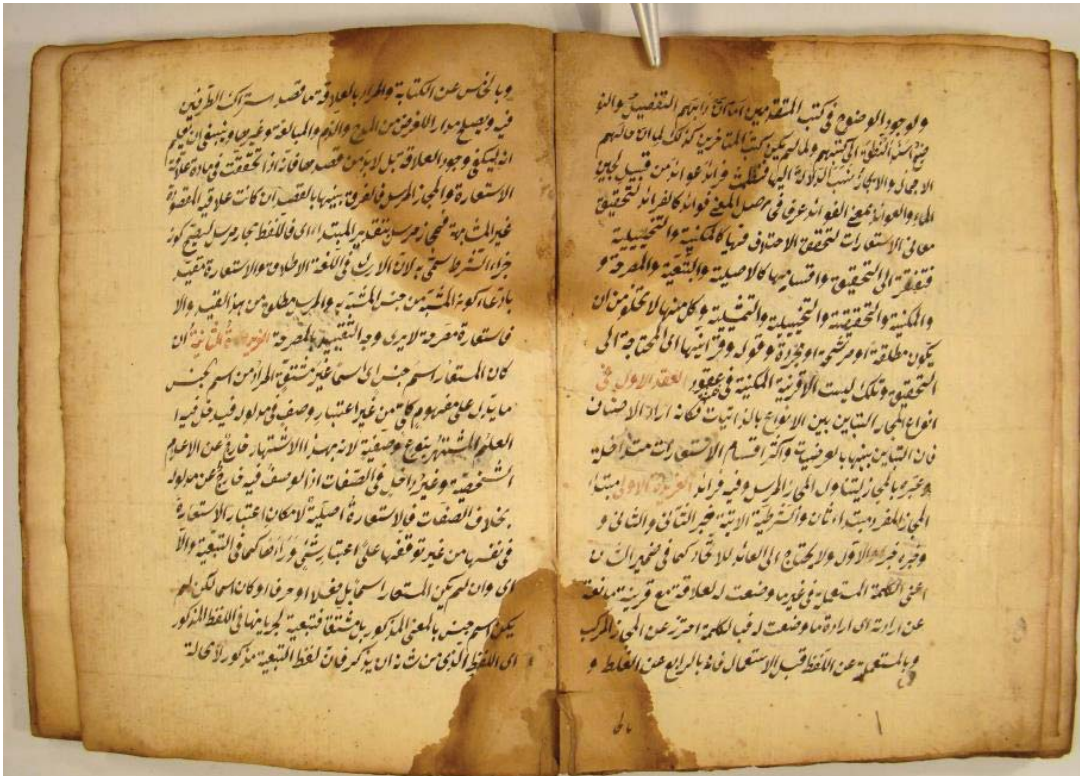 ولوجود الوضوح في كتب المتقدمين التفصيل والنو
الى كتبهم ولما لم يكن كتب المتأخرين كذلك لما ان حالهم
الاجمال والايجاز نسب الدلالة اليها فنظمت فرائد عوائد من قبيل لجين
الماء والعوائد بمعنى الفوائد عرفا فحصل المعنى فوائد كالفرائد لتحقيق
معاني الاستعارات لتحقق الاختلاف فيها كالمكنية والتخييلية
فتفتقر الى التحقيق واقسامها كالاصلية والتبعية والمصرحة و
والمكنية والتحقيقية والتخييلية والتمثيلية وكل منها لا يخلو من ان
يكون مطلقة او مرشحة او مجردة وقوله وقرائنها اى المحتاجة الى
التحقيق وتلك ليست الا قرينة المكنية في عقود العقد الاول في
انواع المجاز التباين بين الانواع بالذاتيات فكانه اراد الاصناف
فان التباين بينها بالعرضيات واكثر اقسام الاستعارات متداخلة
وعبر بالمجاز ليتناول المجاز المرسل وفيه فرائد الفريدة الاولى مبتدأ
المجاز المفرد مبتدأ ثان والشرطية الآتية خبر الثاني والثاني و
وخبره خبر الاول ولا يحتاج الى العائد للاتحاد كما في ضمير الشان
اعنى الكلمة المستعملة في غير ما وضعت له لعلاقة مع قرينة مانعة
عن ارادته اى ارادة ما وضعت له فبالكلمة احترز عن المجاز المركب
وبالمستعملة عن اللفظ قبل الاستعمال بالرابع عن الغلط و
وبالخامس عن الكناية والمراد بالعلاقة ما قصد اشتراك الطرفين
فيه ويصلح مدار الغرض من المدح والذم والمبالغة وغيرها وينبغي ان يعلم
انه ليكفى وجود العلاقة بل لا بد من قصدها فانه اذا تحققت في مادة علاقة
الاستعارة والمجاز المرسل فالفرق بينهما بالقصد ان كانت علاقته المقصودة
غير المشابهة فمجاز مرسل بتقدير المبتداء اى فاللفظ مجاز مرسل ليصح كونه
جزاء الشرط سمى به لان الارسال في اللغة الاطلاق والاستعارة مقيدة
بادعاء كونه المشبه من جنس المشبه به والمرسل مطلق من هذا القيد والا
فاستعارة مصرحة لا يرى وجه التقييد بالمصرحة الفريدة الثانية ان
كان المستعار اسم جنس اى اسما غير مشتق المراد من اسم الجنس
ما يدل على مفهوم كلى من غير اعتبار وصف في مدلوله فيدخل فيه
العلم المشتهر بنوع وصفية لانه بهذا الاشتهار خارج عن الاعلام
الشخصية وغير داخل في الصفات اذ الوصف فيه خارج عن مدلوله
بخلاف الصفات فالاستعارة اصلية لامكان اعتبار الاستعارة
في نفسها من غير توقفها على اعتبار شيء وراءها كما في التبعية والا
اى وان لم يكن المستعار اسما بل فعلا او حرفا او كان اسما لكن لم
يكن اسم جنس بالمعنى المذكور بل مشتقا فتبعية لجريانها في اللفظ المذكور
اى اللفظ الذى من شانه ان يذكر فان لفظ التبعية مذكور لا محالة